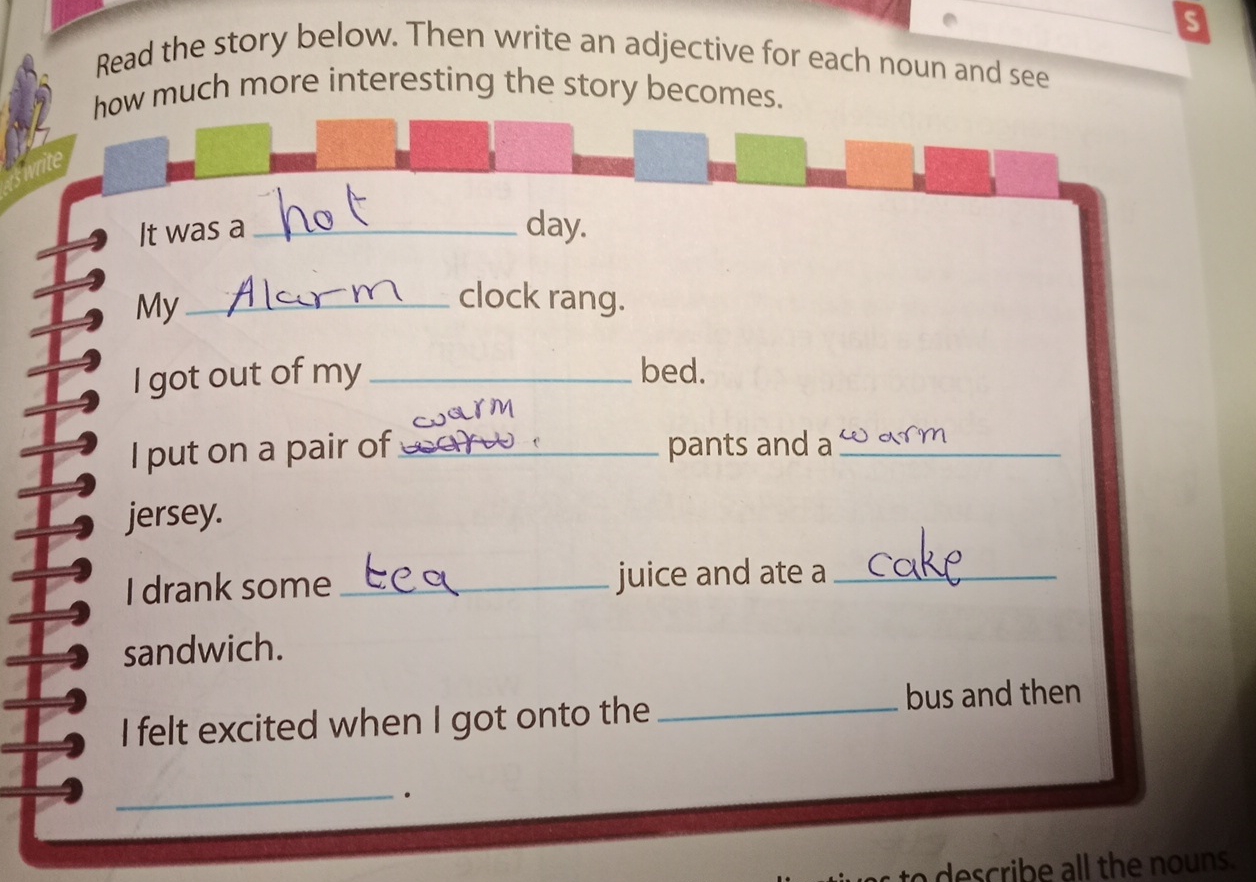 S
Read the story below. Then write an adjective for each noun and see
how much more interesting the story becomes.
let's write
It was a hot day.
My Alarm clock rang.
I got out of my bed.
warm
I put on a pair of pants and a warm
jersey.
I drank some tea juice and ate a cake
sandwich.
I felt excited when I got onto the bus and then
.
to describe all the nouns.